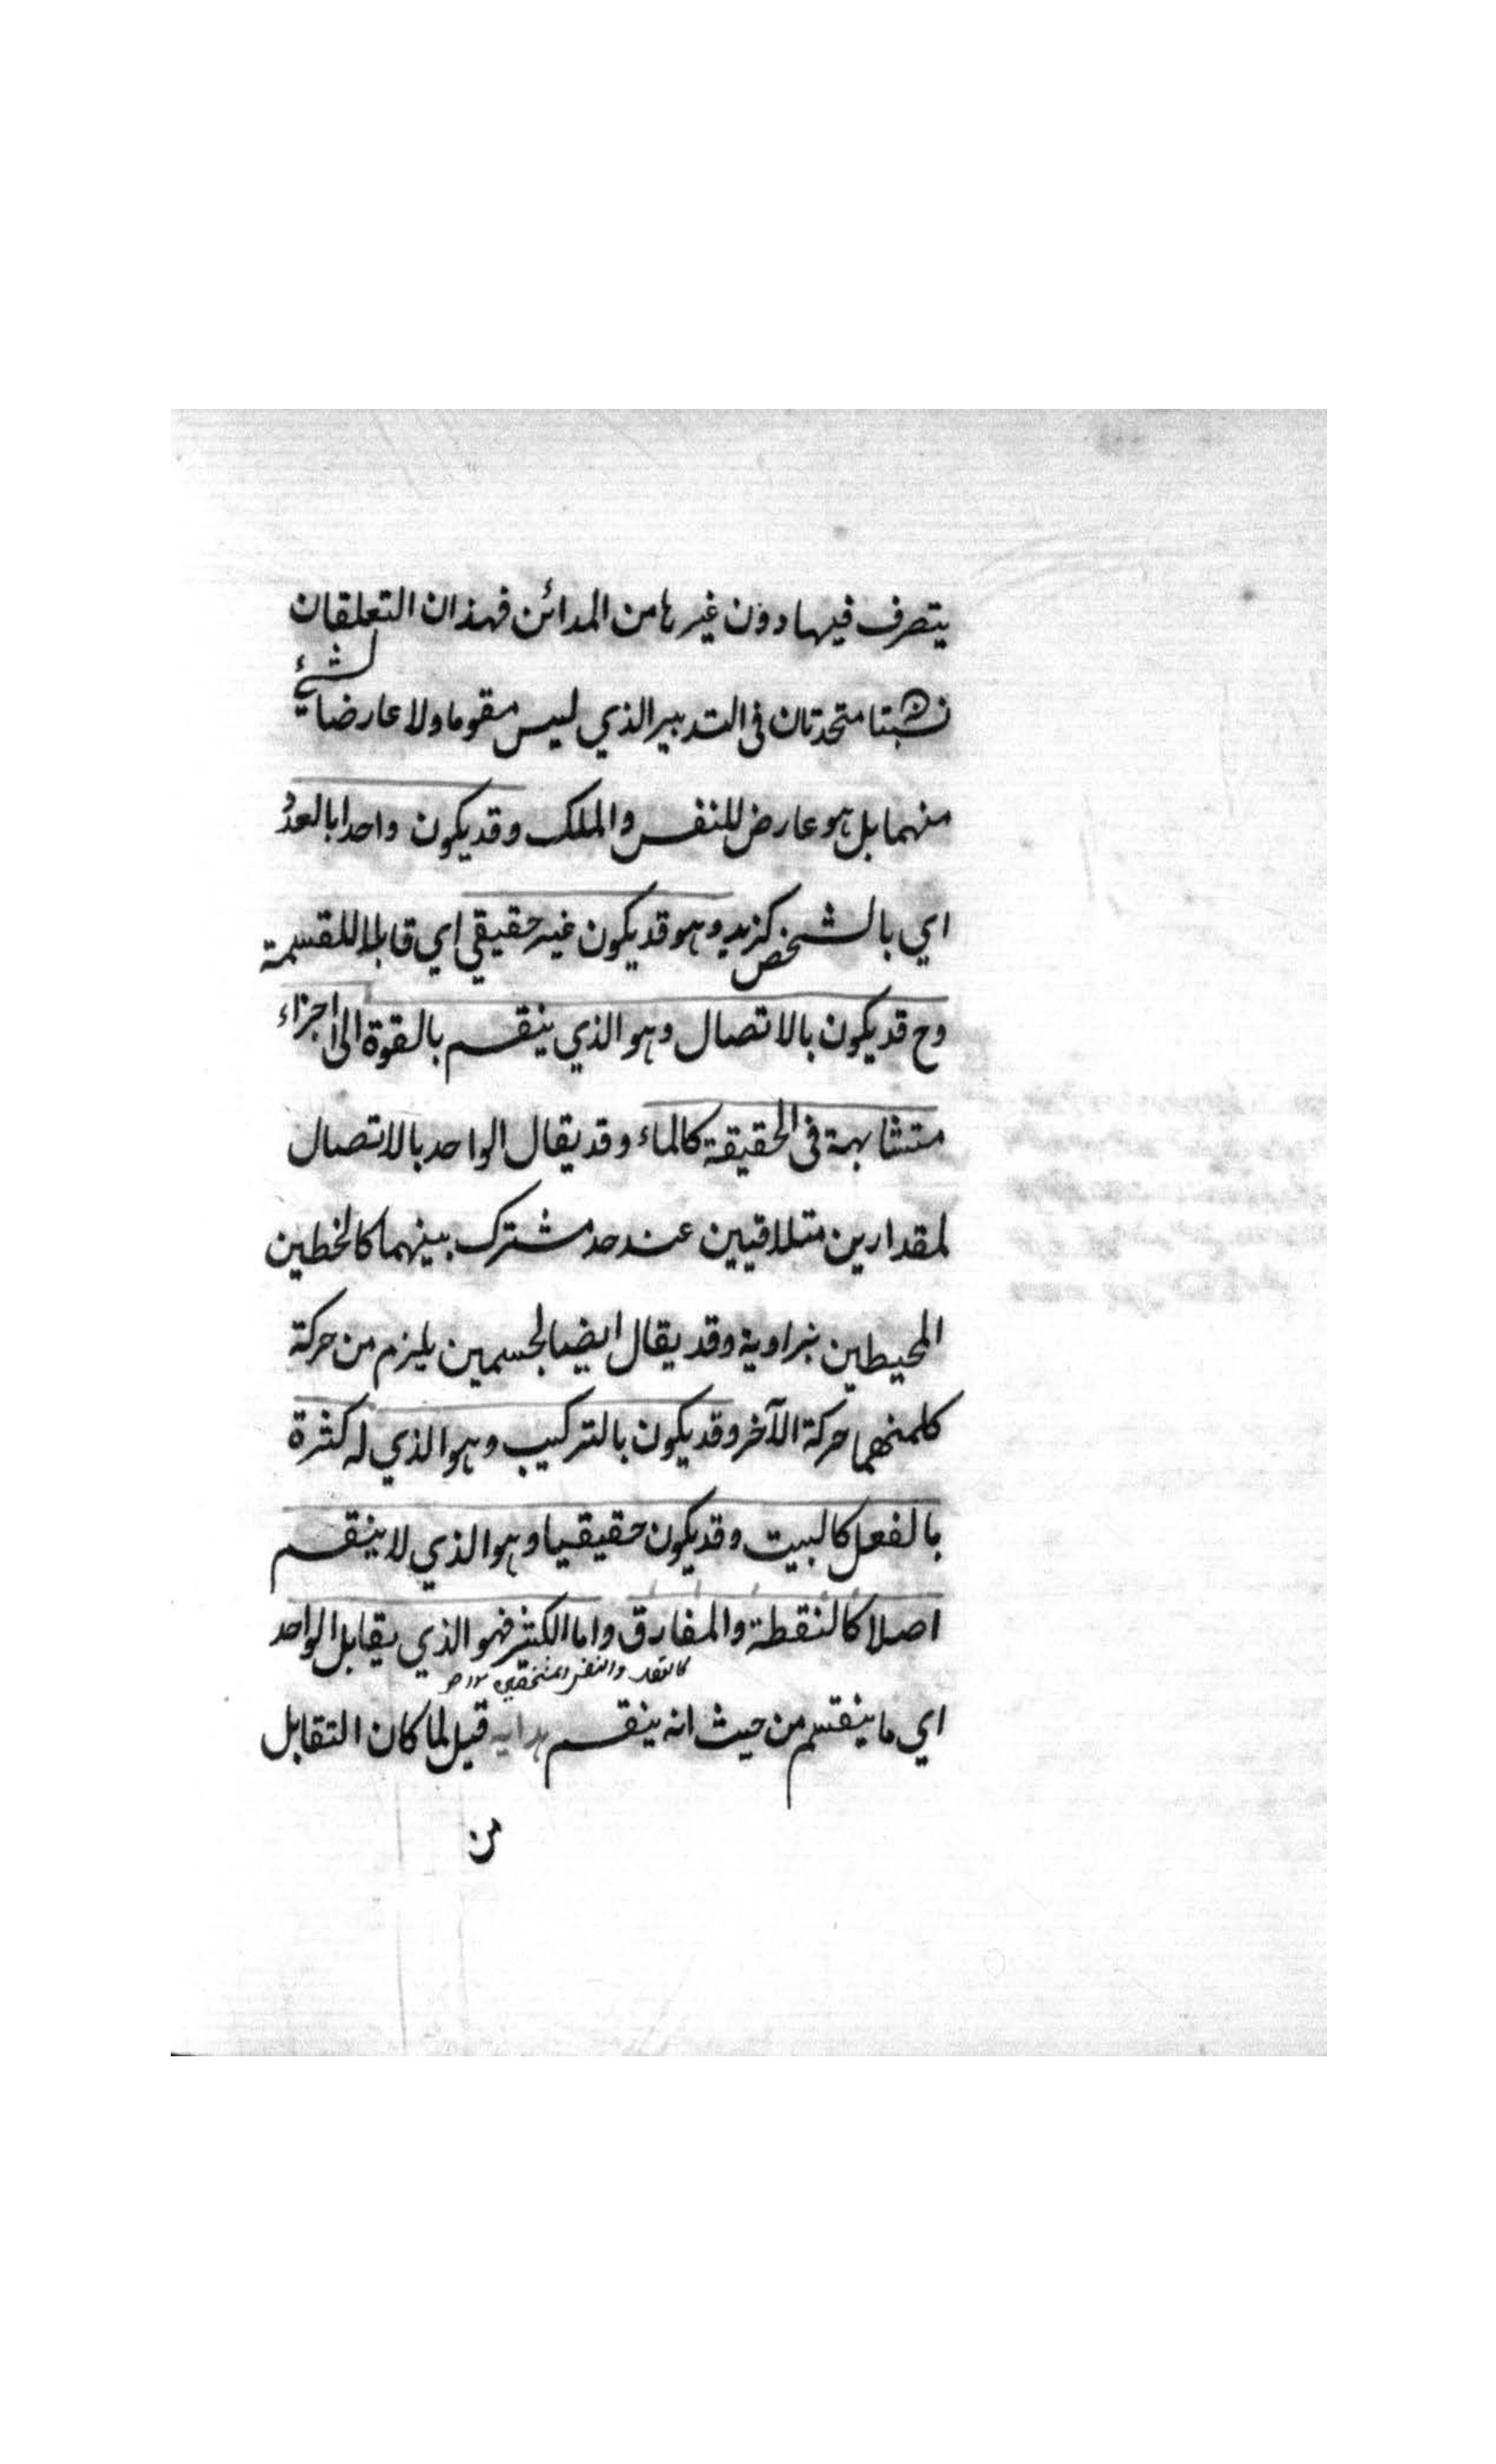 يتصرف فيها دون غيرها من المدائن فهذان التعلقان
نسبتا متحدتان فى التدبير الذي ليس مقوما ولا عارضا لشيئ
منهما بل هو عارض للنفس والملك وقد يكون واحدا بالعدد
اي بالشخص كزيد وهو قد يكون غير حقيقي اي قابلا للقسمة
وح قد يكون بالاتصال وهو الذي ينقسم بالقوة الى اجزاء
متشابهة فى الحقيقة كالماء وقد يقال الواحد بالاتصال
لمقدارين متلاقيين عند حد مشترك بينهما كالخطين
المحيطين بزاوية وقد يقال ايضا لجسمين يلزم من حركة
كلمنهما حركة الآخر وقد يكون بالتركيب وهو الذي له كثرة
بالفعل كالبيت وقد يكون حقيقيا وهو الذي لا ينقسم
اصلا كالنقطة والمفارق واما الكثير فهو الذي يقابل الواحد
كالعقل والنفس
اي ما ينقسم من حيث انه ينقسم هداية قيل لما كان التقابل
من